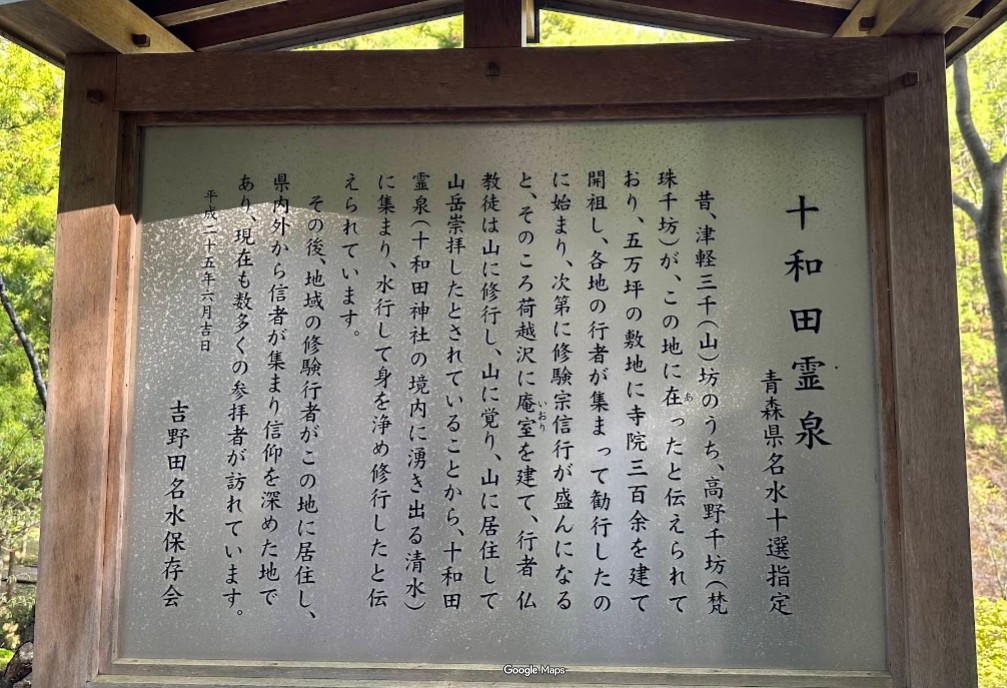 十和田霊泉
青森県名水十選指定
昔、津軽三千(山)坊のうち、高野千坊(梵
珠千坊)が、この地に在ったと伝えられて
おり、五万坪の敷地に寺院三百余を建て
開祖し、各地の行者が集まって勧行したの
に始まり、次第に修験宗信行が盛んになる
と、そのころ荷越沢に庵室を建て、行者 仏
教徒は山に修行し、山に覚り、山に居住して
山岳崇拝したとされていることから、十和田
霊泉(十和田神社の境内に湧き出る清水)
に集まり、水行して身を浄め修行したと伝
えられています。
その後、地域の修験行者がこの地に居住し、
県内外から信者が集まり信仰を深めた地で
あり、現在も数多くの参拝者が訪れています。
平成二十五年六月吉日
吉野田名水保存会
あ
いおり
Google Maps